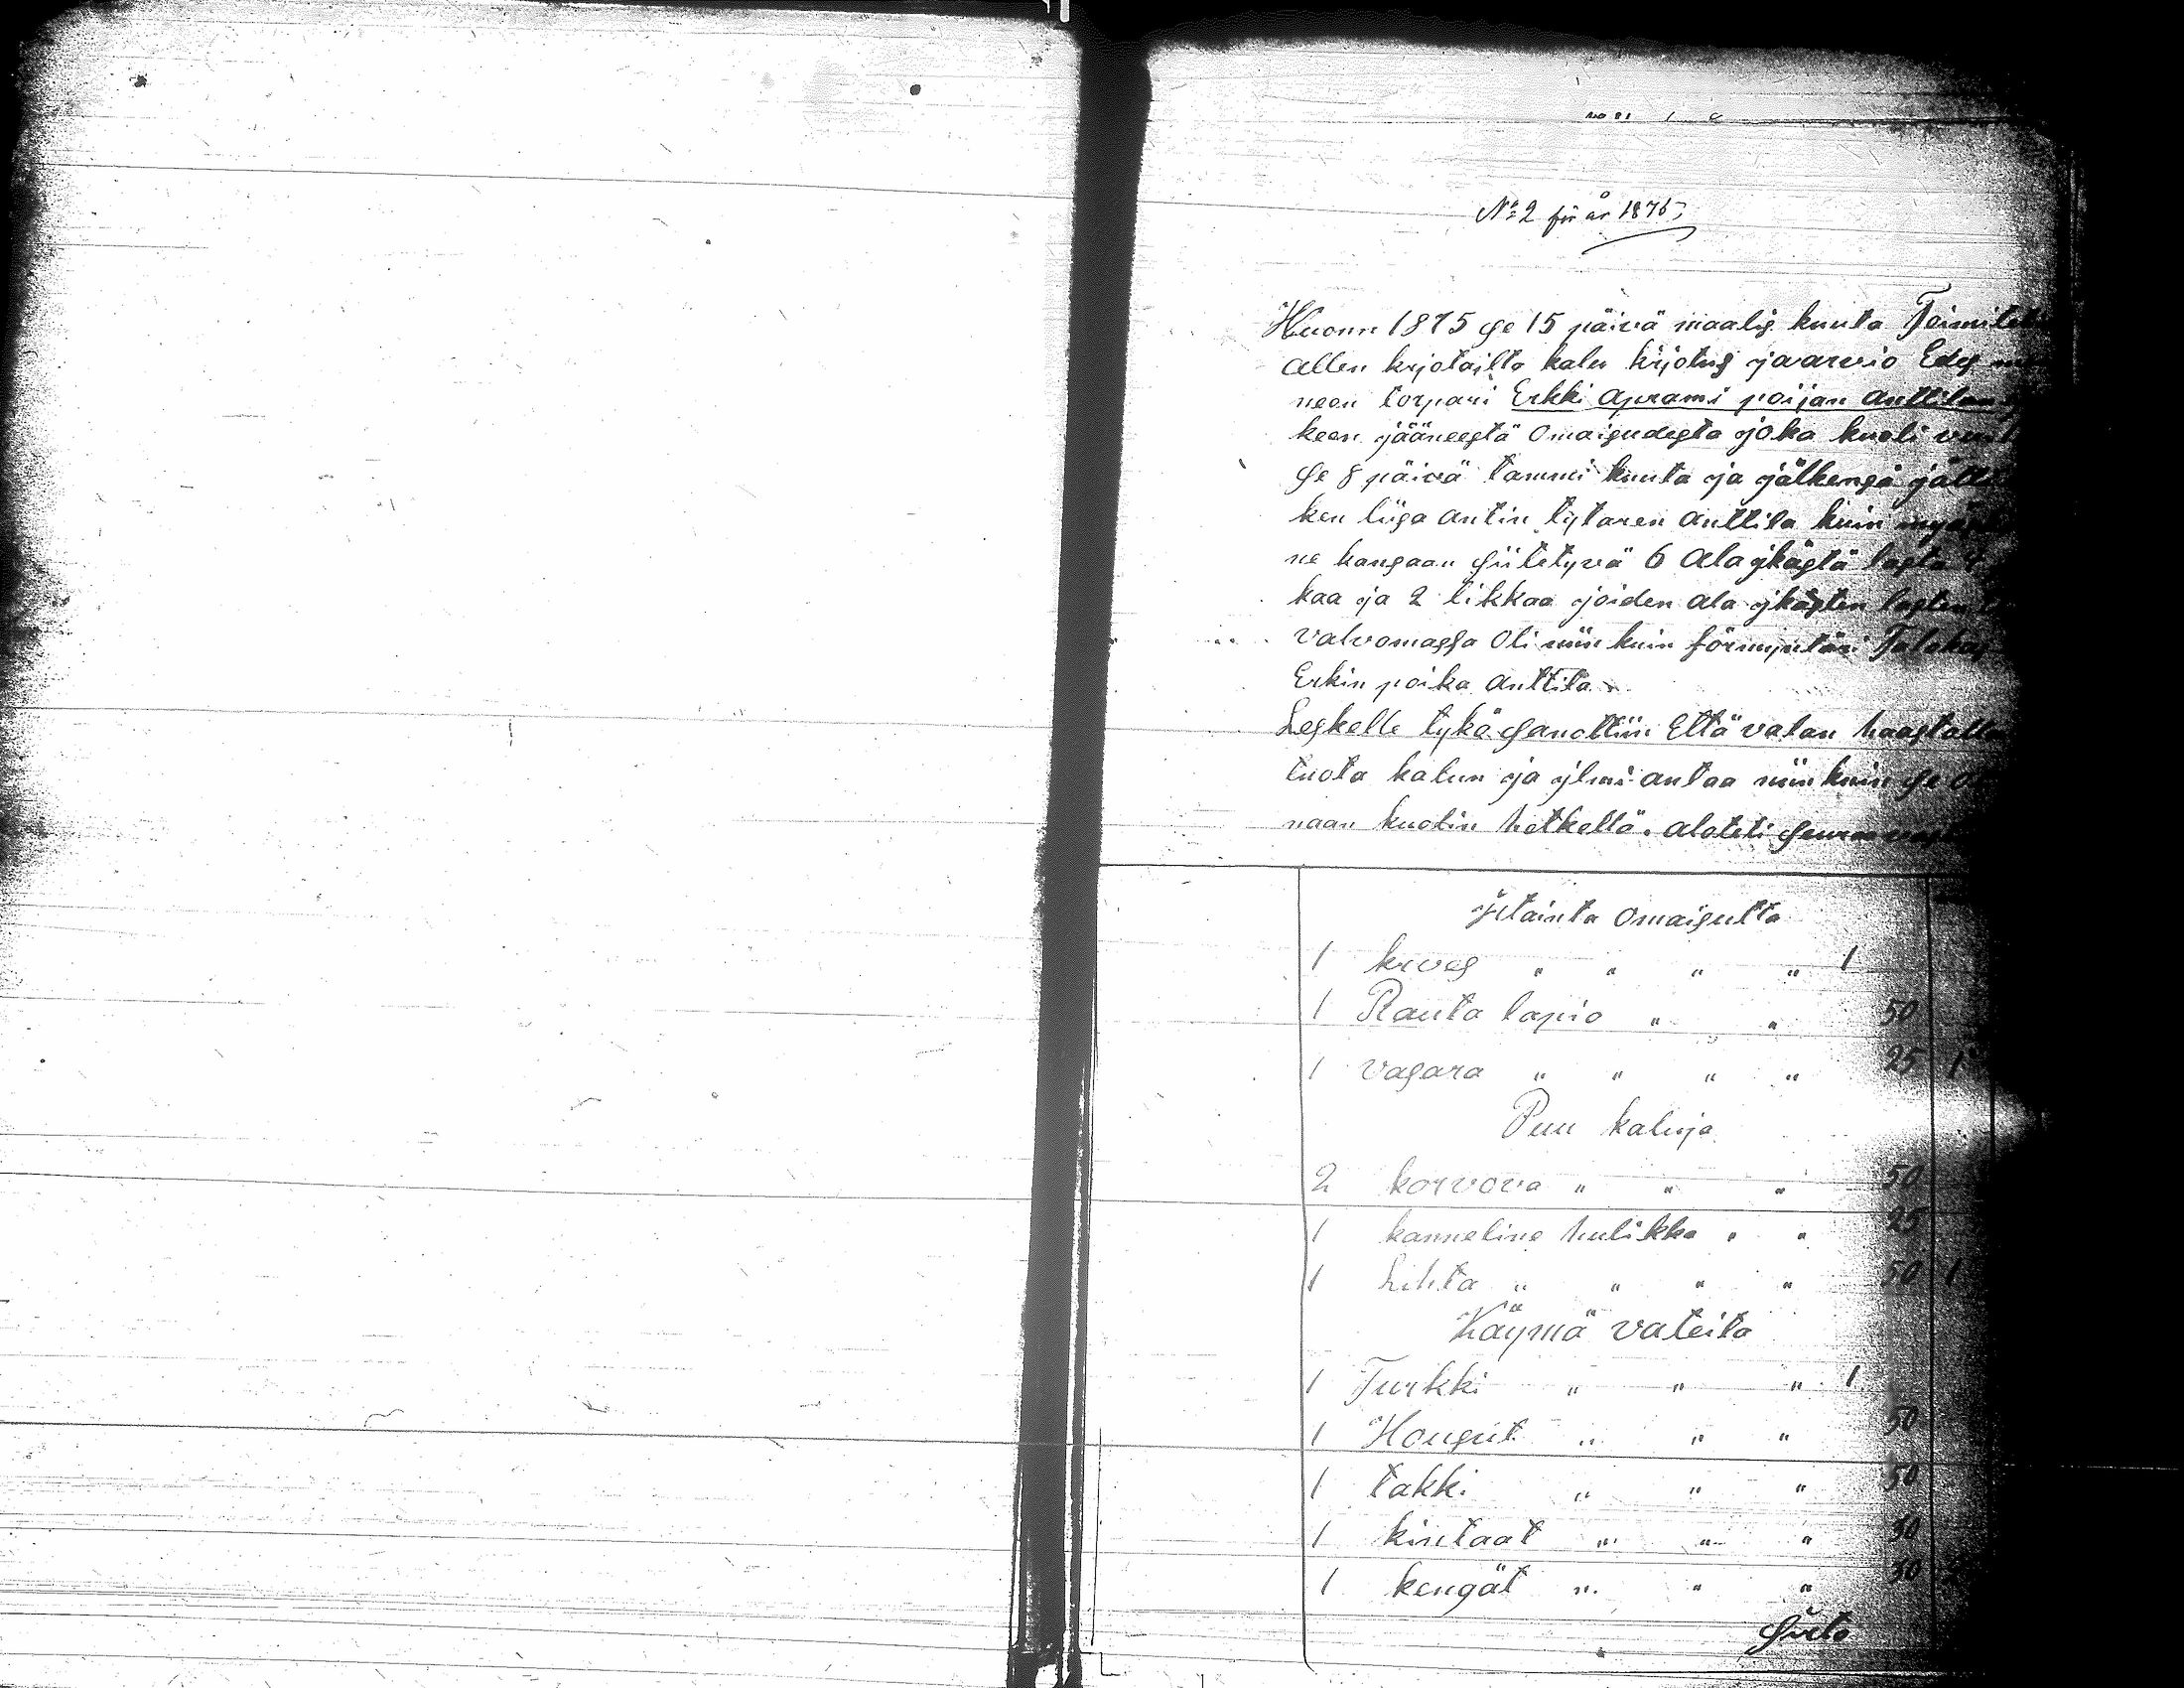 No 2 för år 1875
Wuonn 1875 se 15 päivä maalis kuuta
allen kirjotailta kalu kirjotus ja arvio Edes
neen torpari Erkki aprami poijan anttilan
keen jääneestä Omaisudesta joka kuoli
se 8 päivä tammi kuuta ja jälkensä
ken liisa antin tytaren anttila kuin
ne kansaan siitetyvä 6 Ala jkästä lasta
kaa ja 2 likkaa joiden ala jkästen lasten
valvomassa Oli niin kuin förmyntäri
Erkin poika anttila
Leskelle tykö sanottiin Että valan
tuota kalun ja jlmi antaa niin kuin se
naan kuolin hetkellä. aloteti
Jrtainta Omaisutta
1 kirves " " " " 1
1 Rauta lapio " " 50
1 vasara " " " " 25 1
Puu kaluja
2 korvova " " " 50
1 kanneline hulikka " " 25
1 Lihta " " " " 50 1
Käymä vateita
1 Turkki " " " 1
1 Housut " " " 50
1 takki " " " 50
1 kintaat " " " 30
1 kengät " " " 30
siirto